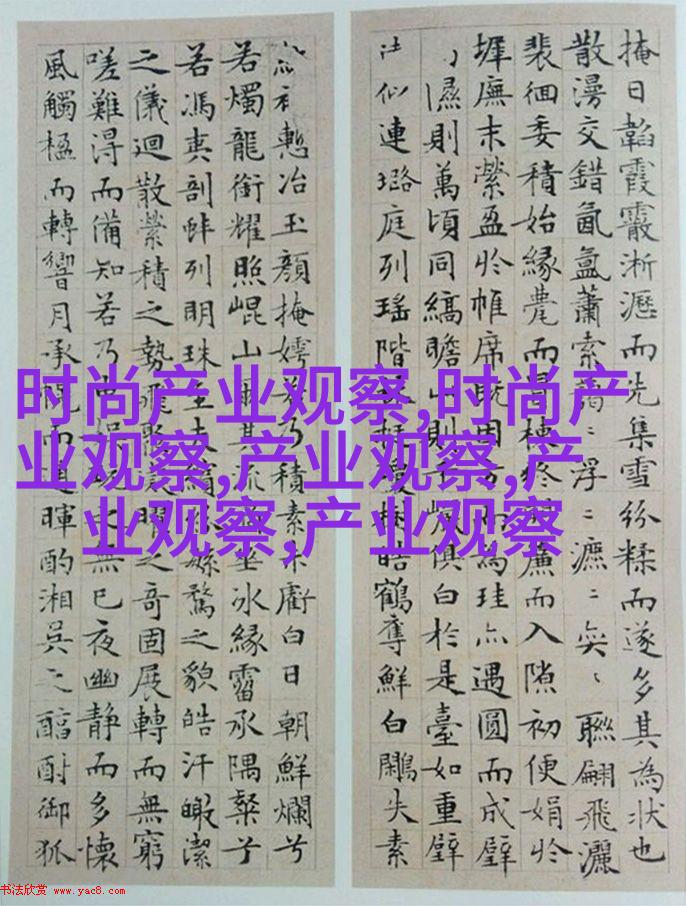 掩日韜霞霰淅瀝而先集雪紛糅而遂多其為狀也
散漫交錯氤氳蕭索藹〻浮〻瀌〻奕〻聯翩飛灑
裴徊委積始緣甍而冒棟終簾而入隙初便娟於
墀廡末縈盈於帷席既因方而為珪亦遇圓而成璧
隰則萬頃同縞瞻山則千巖俱白於是臺如重璧
似連璐庭列瑤階林挺瓊樹皓鶴奪鮮白鷴失素
慙冶玉顏掩嫮若乃積素未虧白日朝鮮爛兮
若燭龍銜耀照崐山爾其流垂冰緣霤承隅粲兮
若馮夷剖蚌列明珠至夫繽繁騖之貌皓汗曒潔
之儀迴散縈積之勢飛聚凝曜之奇固展轉而無窮
嗟難得而備知若乃申娛之無已夜幽静而多懷
風觸楹而轉響月承幌而通暉酌湘吳之醇酎御狐
时尚产业观察,时尚产
业观察,产业观察,产
业观察,产业观察
书法欣赏 www.yac8.com